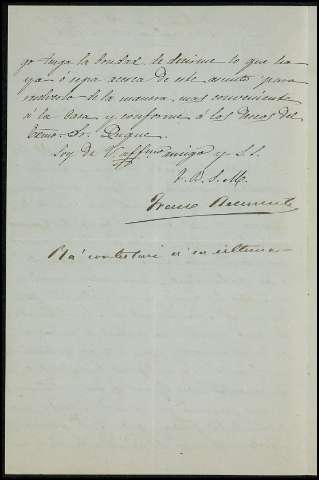 go tenga la bondad de decirme lo que ha
ya ó sepa acerca de este asunto para
resolverlo de la manera mas conveniente
á la Casa y conforme á los deseos del
Excmo. Sr. Duque.
Soy de V. affmo amigo y S.S.
Q. B. S. M.
Ya contesté á su última